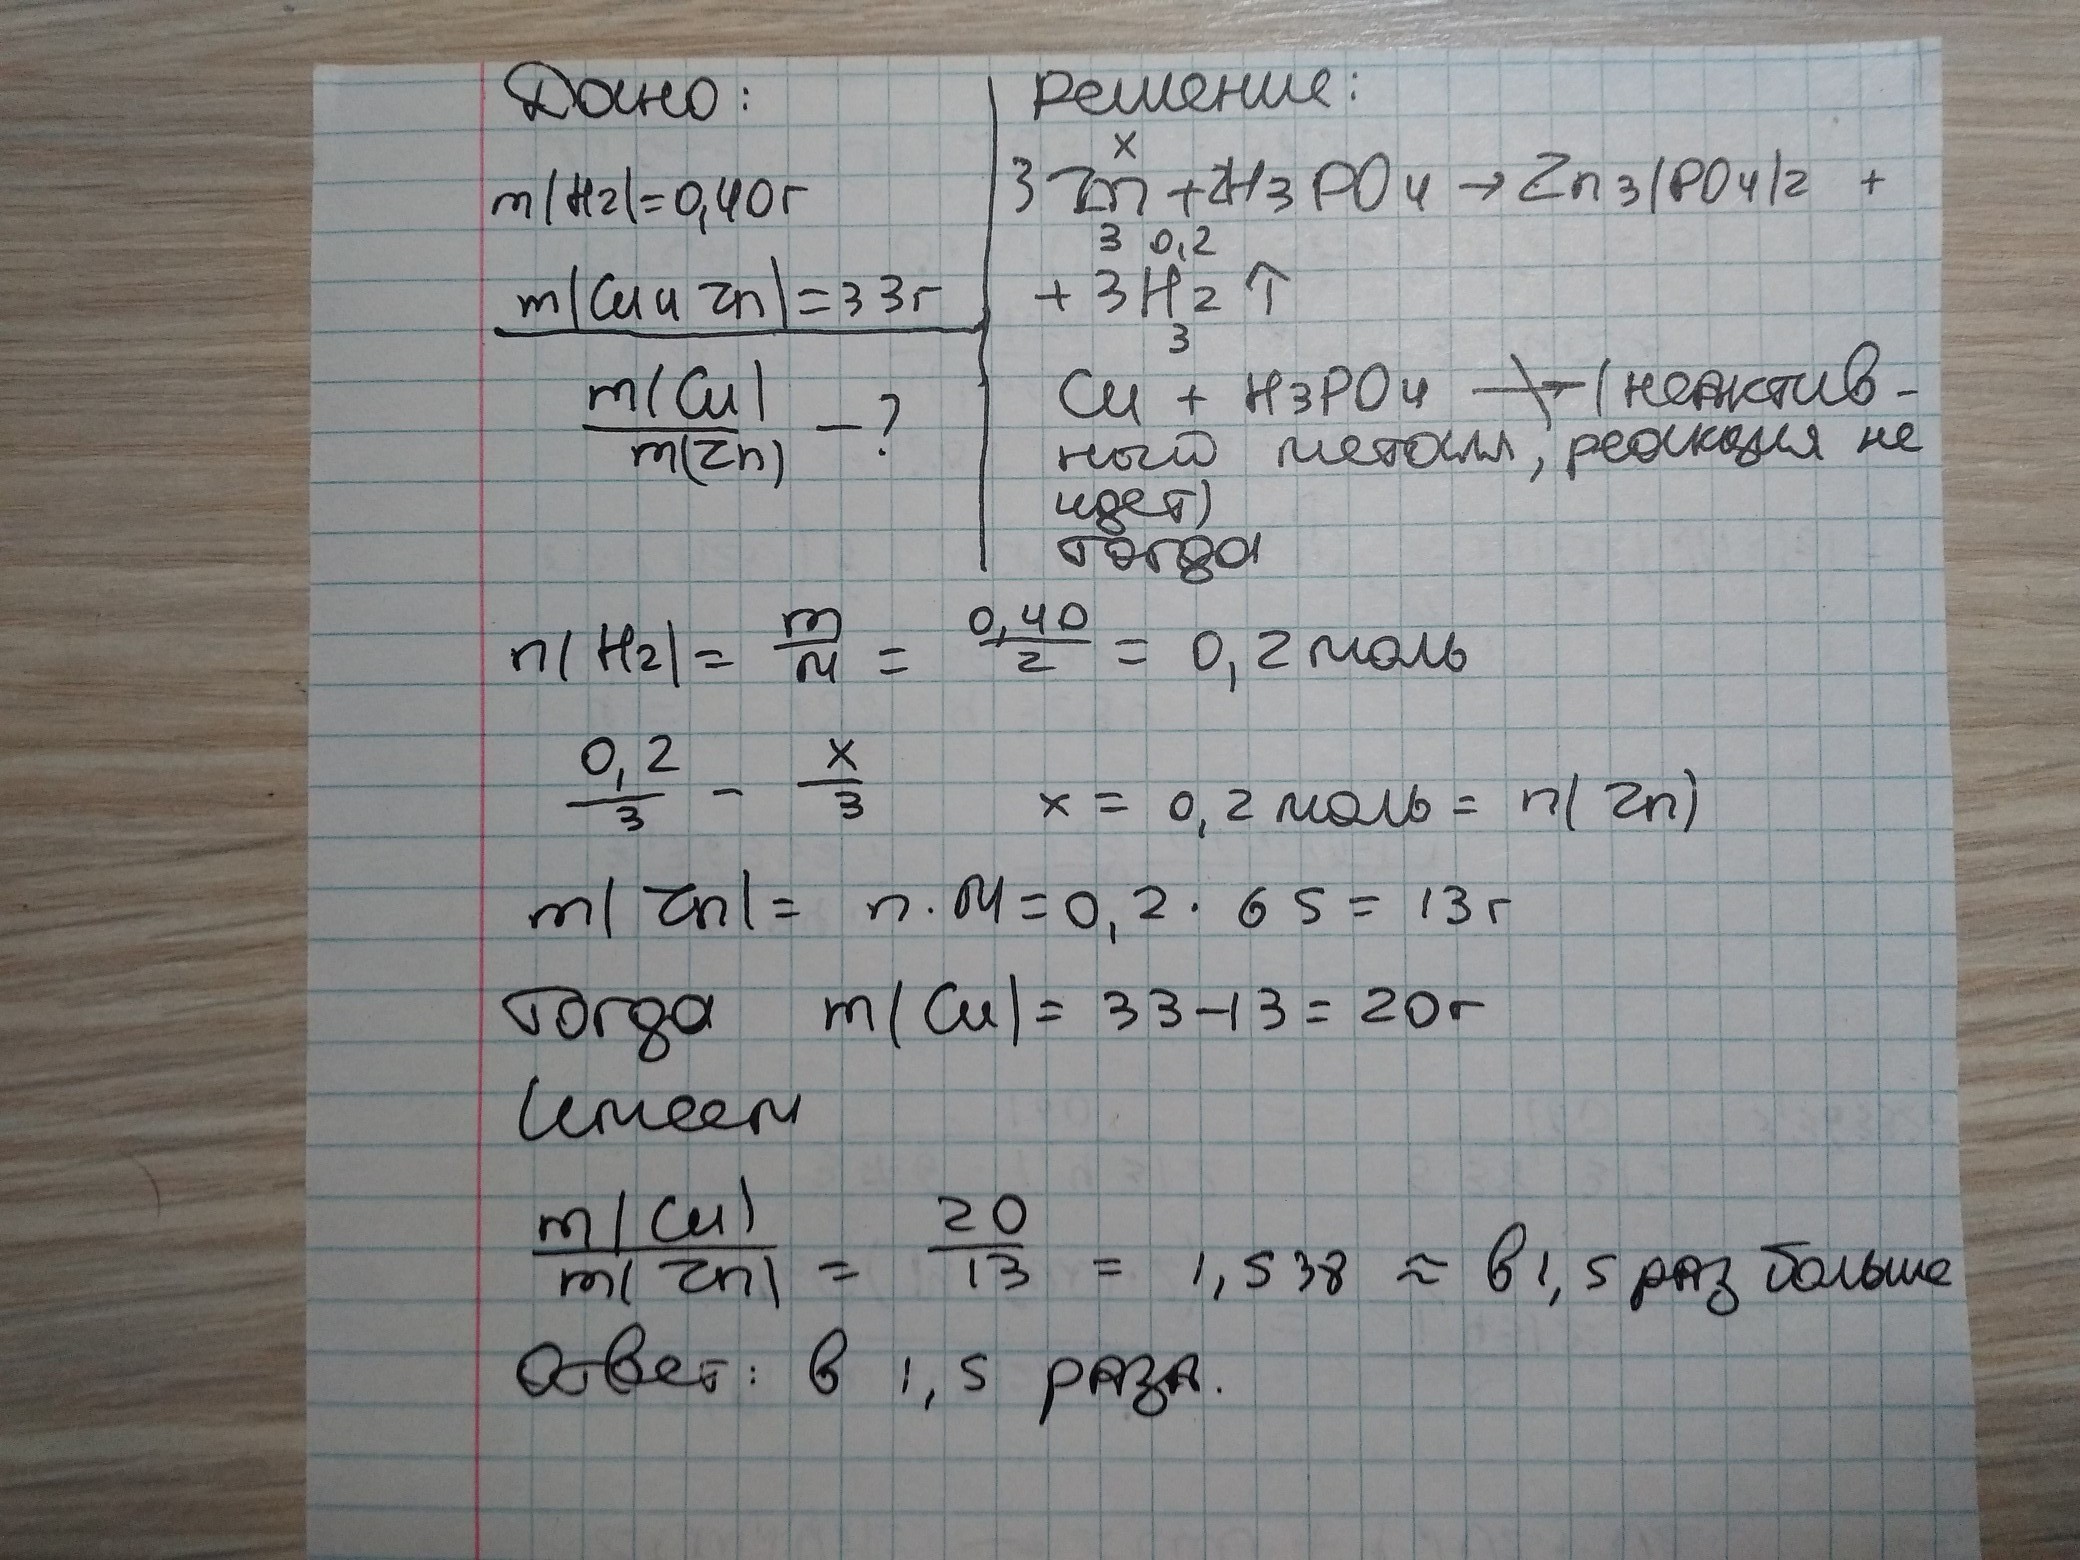 Дано:
m(H2)=0,40г
m(Cu и Zn)=33г
m(Cu)
m(Zn) - ?
Решение:
x
3Zn + 2H3PO4 → Zn3(PO4)2 +
3 0,2
+ 3H2 ↑
3
Cu + H3PO4 -/→ (неактив-
ный металл, реакция не
идет)
тогда
n(H2) = m/M = 0,40/2 = 0,2 моль
0,2/3 - x/3 x = 0,2 моль = n(Zn)
m(Zn) = n·M = 0,2·65 = 13г
Тогда m(Cu) = 33-13 = 20г
Имеем
m(Cu)/m(Zn) = 20/13 = 1,538 ≈ в 1,5 раз больше
Ответ: в 1,5 раза.